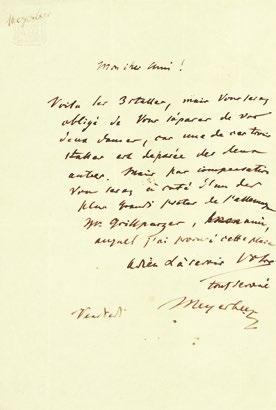 Meyerbeer
Mon cher Ami!
Voila les 3 stalles, mais vous serez
obligé de vous séparer de vos
deux dames, car une de ces trois
stalles est séparée des deux
autres. Mais par compensation
vous serez à coté d'un des
plus grands poetes de l'allemagne
Mr. Grillparzer, ami,
auquel j'ai promis cette place
adieu & à revoir Votre
tout devoué
Vendredi Meyerbeer